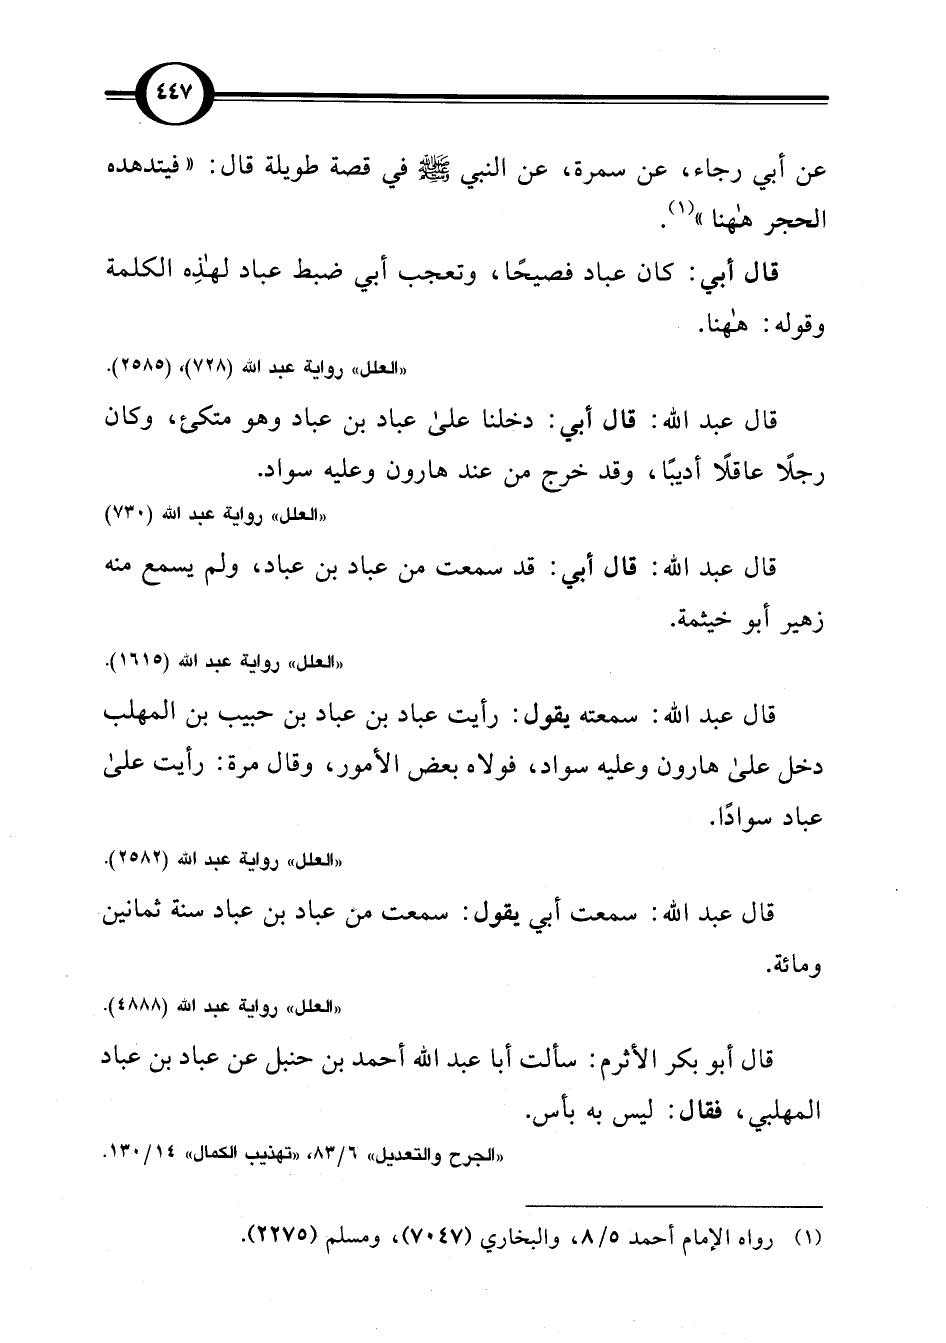 ٤٤٧
عن أبي رجاء، عن سمرة، عن النبي ﷺ في قصة طويلة قال: « فيتدهده
الحجر هٰهنا »(١).
قال أبي: كان عباد فصيحًا، وتعجب أبي ضبط عباد لهٰذِه الكلمة
وقوله: هٰهنا.
«العلل» رواية عبد الله (٧٢٨)، (٢٥٨٥).
قال عبد الله: قال أبي: دخلنا علىٰ عباد بن عباد وهو متكئ، وكان
رجلًا عاقلًا أديبًا، وقد خرج من عند هارون وعليه سواد.
«العلل» رواية عبد الله (٧٣٠)
قال عبد الله: قال أبي: قد سمعت من عباد بن عباد، ولم يسمع منه
زهير أبو خيثمة.
«العلل» رواية عبد الله (١٦١٥).
قال عبد الله: سمعته يقول: رأيت عباد بن عباد بن حبيب بن المهلب
دخل علىٰ هارون وعليه سواد، فولاه بعض الأمور، وقال مرة: رأيت علىٰ
عباد سوادًا.
«العلل» رواية عبد الله (٢٥٨٢).
قال عبد الله: سمعت أبي يقول: سمعت من عباد بن عباد سنة ثمانين
ومائة.
«العلل» رواية عبد الله (٤٨٨٨).
قال أبو بكر الأثرم: سألت أبا عبد الله أحمد بن حنبل عن عباد بن عباد
المهلبي، فقال: ليس به بأس.
«الجرح والتعديل» ٨٣/٦، «تهذيب الكمال» ١٣٠/١٤.
(١) رواه الإمام أحمد ٨/٥، والبخاري (٧٠٤٧)، ومسلم (٢٢٧٥).